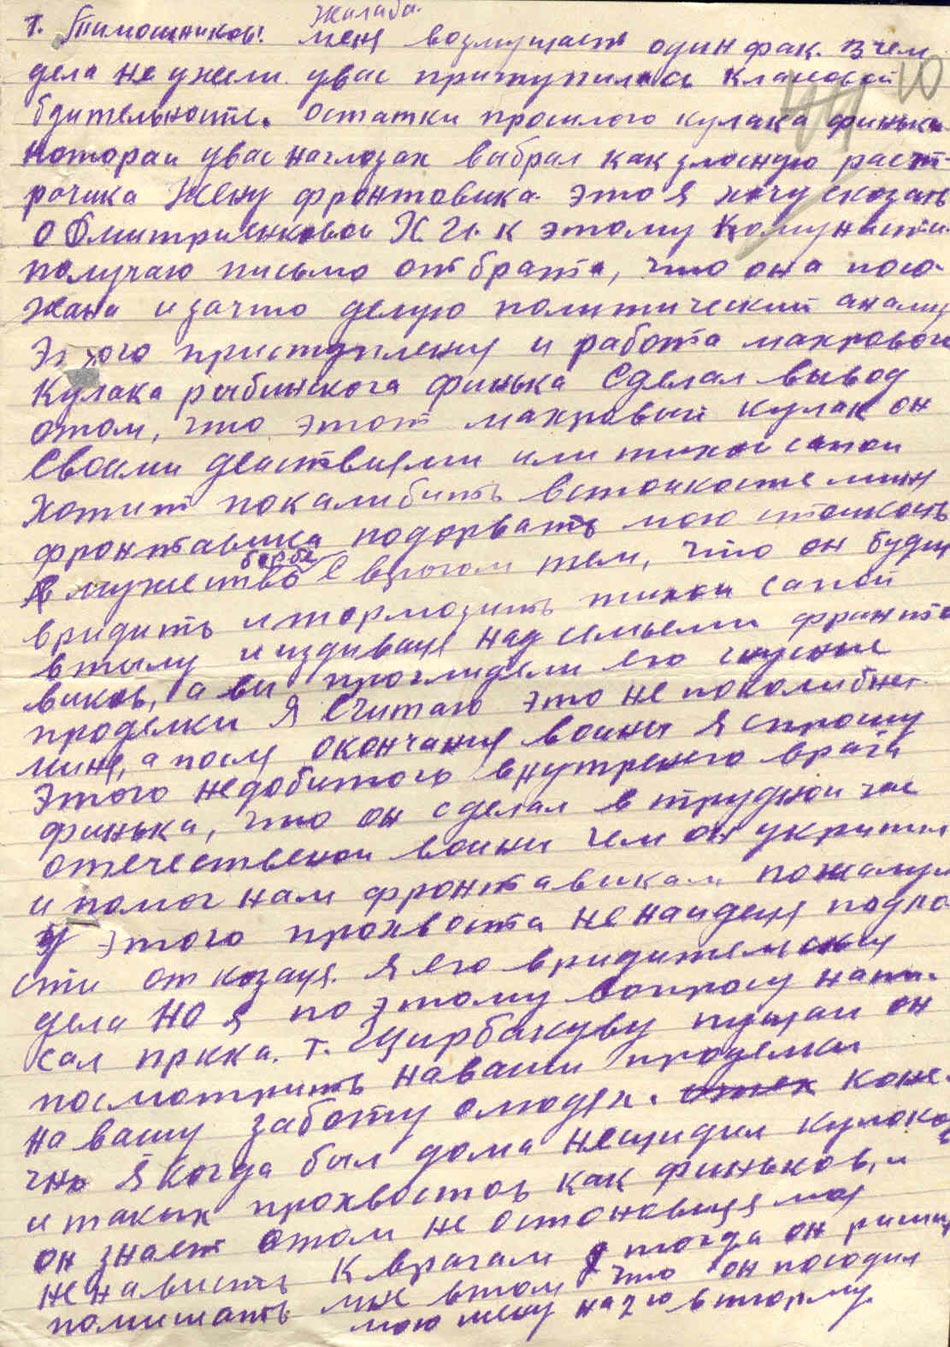 Жалаба.
т. Тимошников! меня возмущает один фак. в чем
дела не ужели увас притупилась класовой
бдительность. остатки прошлого кулака финька
которай увас наглозах выбрал как злосную раст-
рочика Жену фронтовика. это я хочу сказать
о Дмитриенковой Х И. к этому
получаю письмо от брата, что она поса-
жана и зачто делую политический анализ
этого приступлену и работа махрового
Кулака рыбинскога финька Сделал вывод
отом, что этот махровый кулак он
Своими действиями или тихой сапой
хотит покалибить встойкосте мин
фронтавика подорвать мою стойкость
в мужество борбе с врогом тем, что он будит
вридить итормозить тихой сапой
втылу и издиваця над семьеми фронто
виков, а ви проглидели его гнусные
проделки Я Считаю это не поколибает
миня, а посля окончания воины Я спрошу
Этого недобитого внутренего врага
финька, что он сделал в трудной час
отечественой воины чем он укрипил
и помог нам фронтавикам пожалуй
у этого прохвоста не найдеця подло
сти отказаця. я его вридительския
дела НО я поэтому вопросу напи-
сал пркка. т. Щирбакуву пущай он
посмотрить наваши проделки
на вашу заботу олюдех. коне-
чно Я когда был дома нещидил кулаков
и таких прохвостов как финьков, и
он знает отом не остоновиця моя
ненависть К врагам тогда он ришил
помишать мне втом что он посодил
мою жену на 2 ю втюрму.
10